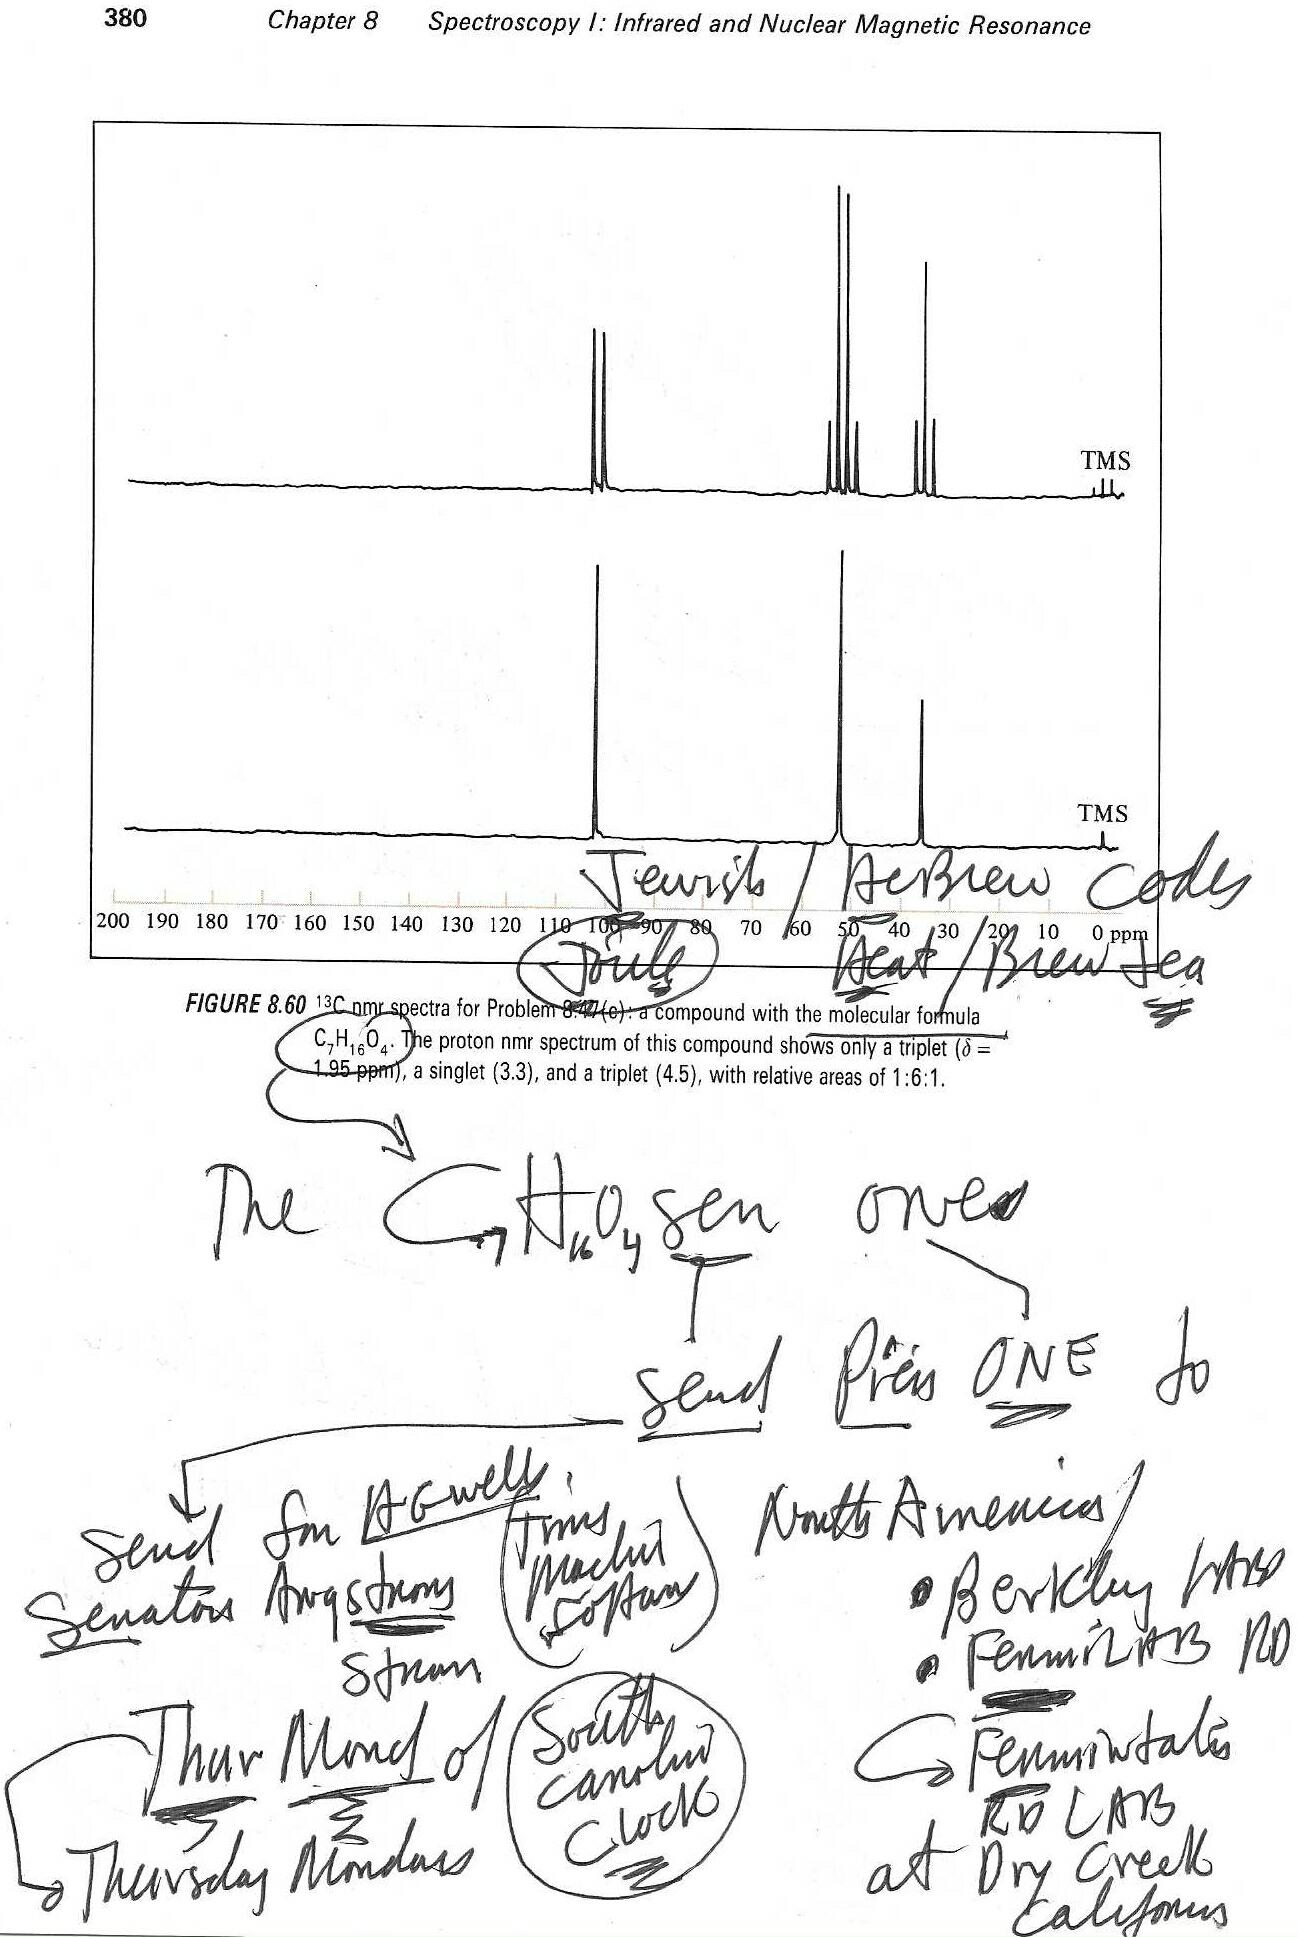 380 Chapter 8 Spectroscopy I: Infrared and Nuclear Magnetic Resonance
TMS
TMS
Jewish / HeBrew Codes
200 190 180 170 160 150 140 130 120 110 100 90 80 70 60 50 40 30 20 10 0 ppm
Joule Heat / Brew Tea
FIGURE 8.60 ¹³C nmr spectra for Problem 8.47(e): a compound with the molecular formula
C₇H₁₆O₄. The proton nmr spectrum of this compound shows only a triplet (δ =
1.95 ppm), a singlet (3.3), and a triplet (4.5), with relative areas of 1:6:1.
The C₇H₁₆O₄sen ones
send Press ONE to
Send for HG wells.
Time
Machine
North America/
Senators Angstroms
Berkley LABS
Strom
FermiLAB RD
Thur Mond of
South
Carolin
Clock
RD LAB
Thursday Mondays
at Dry Creek
California